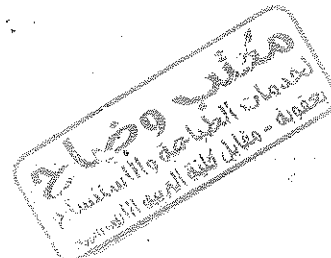 مكتب وضاح
لخدمات الطباعة والاستنساخ
بعقوبة - مقابل كلية التربية الاساسية